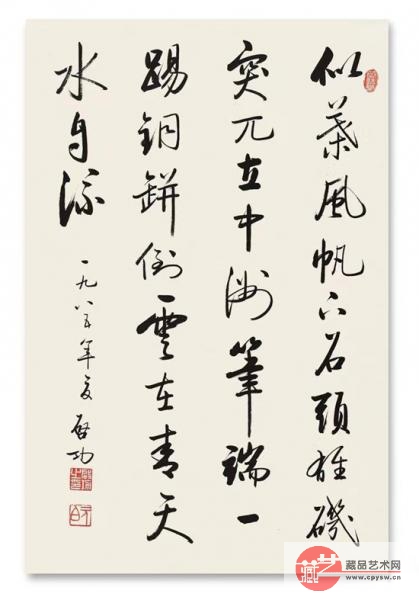 似葉風帆下石頭雄磯
突兀立中洲筆端一
踢銅缾倒雲在青天
水自流
一九八五年夏 啟功
藏品艺术网
www.cpysw.cn